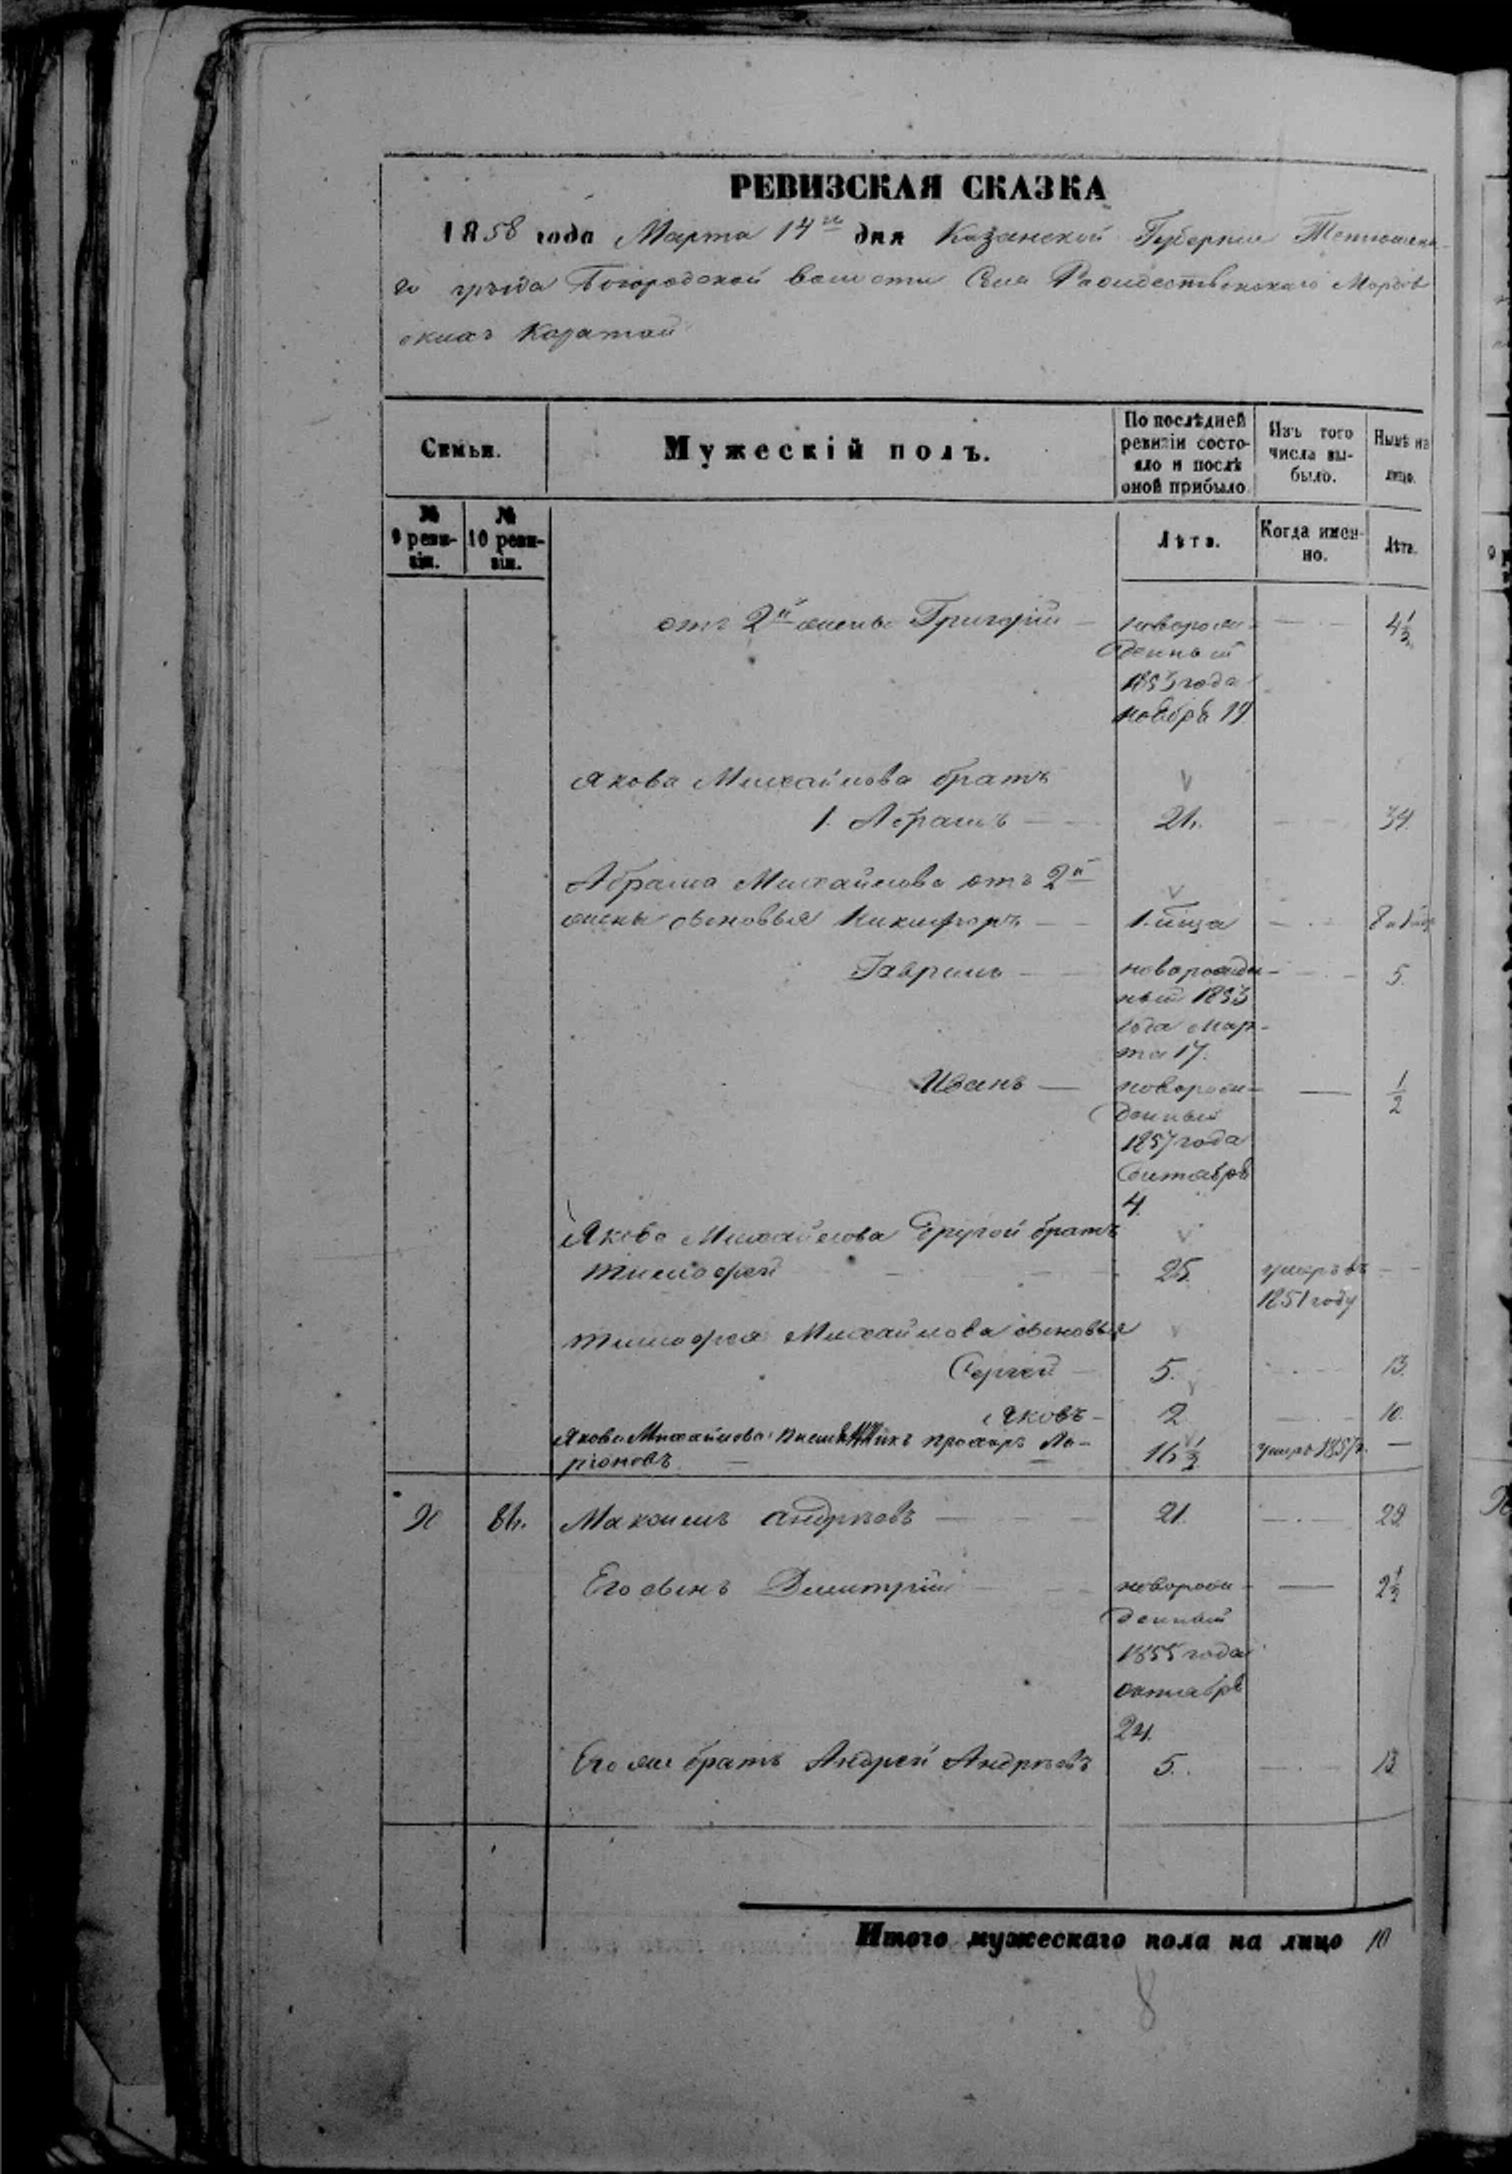 РЕВИЗСКАЯ СКАЗКА
1858 года Марта 14го дня Казанской Губернии Тетюшска-
го уѣзда Богородской волости Села Рождественскаго Мордов
скихъ Каратай
Семьи.
Мужескій полъ.
По послѣдней ревизіи состо-
яло и послѣ
оной прибыло
Изъ того
числа вы-
было.
Нынѣ на
лицо.
№
9 реви-
зіи.
№
10 реви-
зіи.
Лѣта.
Когда имен-
но.
Лѣта.
отъ 2й жены Григорій — новорож- 4½
денный
1853 года
ноября 19
Якова Михайлова братъ
1. Абрамъ 34
Абрама Михайлова отъ 2й
жены сыновья Никифоръ
Гавриилъ — новорожден- 5.
ный 1853
года Мар-
та 17.
Иванъ — новорож- — ½
денный
1857 года
Сентября
4
Якова Михайлова другой братъ
Тимофей 25. умеръ въ
1851 году
Тимофея Михайлова сыновья
Сергей 5. 13.
Яковъ 2 10.
Якова Михайлова Прохоръ Ла-
ріоновъ 16½ умеръ —
Максимъ Андрѣевъ 21. 29
Его сынъ Димитрій новорож- — 2½
денный
1855 года
октября
24.
Его же братъ Андрей Андрѣевъ 5. 13
Итого мужескаго пола на лицо 10
8